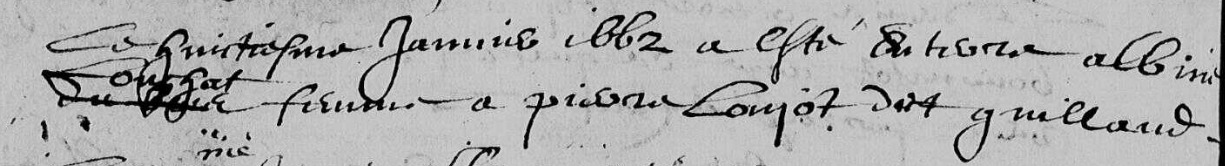 Le huictiesme Janvier 1662 a esté enterre albine
Couchat
femme a pierre Loujot dit guilland
me